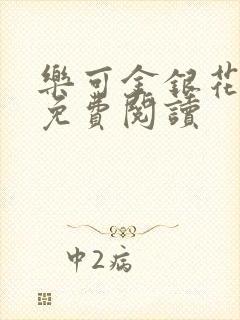 樂可金銀花
免費閱讀
中2病